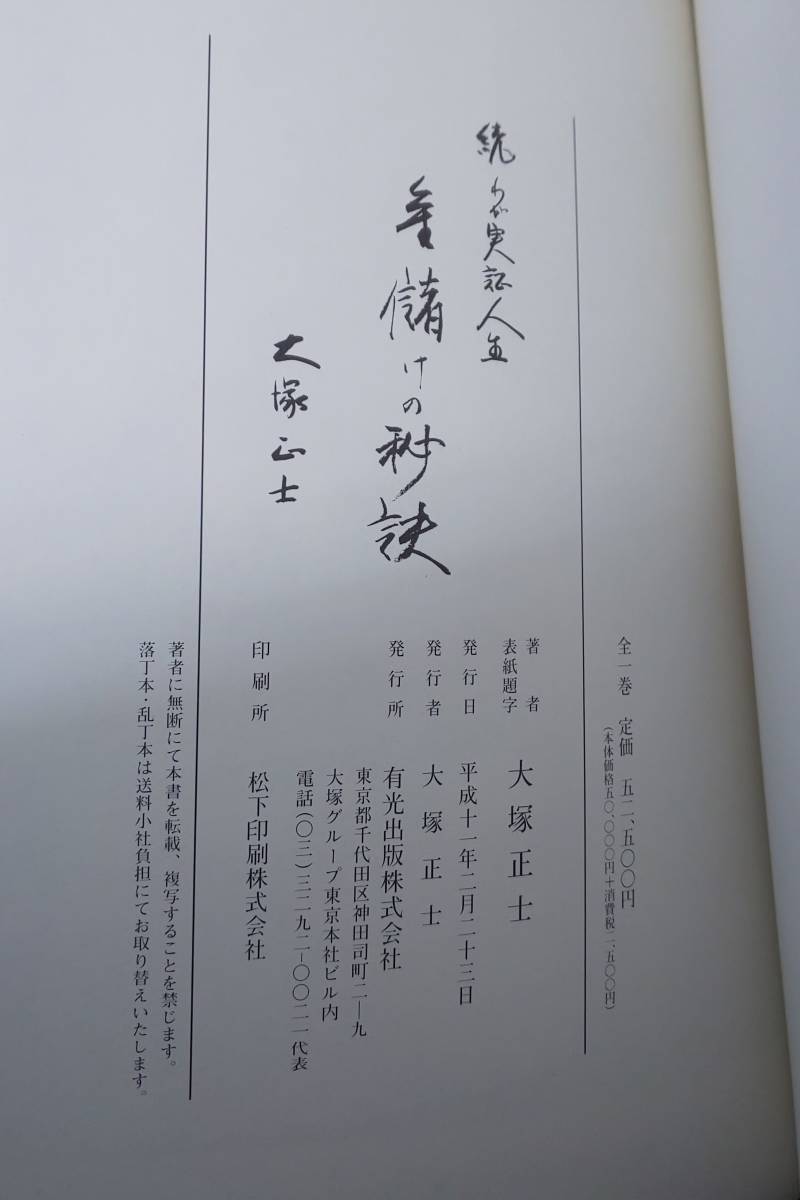 全一巻　定価　五二、五〇〇円
（本体価格五〇、〇〇〇円＋消費税二、五〇〇円）
続わが実証人生
金儲けの秘訣
大塚正士
著者
表紙題字
大塚正士
発行日　平成十一年二月二十三日
発行者　大塚正士
発行所　有光出版株式会社
東京都千代田区神田司町二―九
大塚グループ東京本社ビル内
電話（〇三）三二九二―〇〇二一代表
印刷所　松下印刷株式会社
著者に無断にて本書を転載、複写することを禁じます。
落丁本・乱丁本は送料小社負担にてお取り替えいたします。